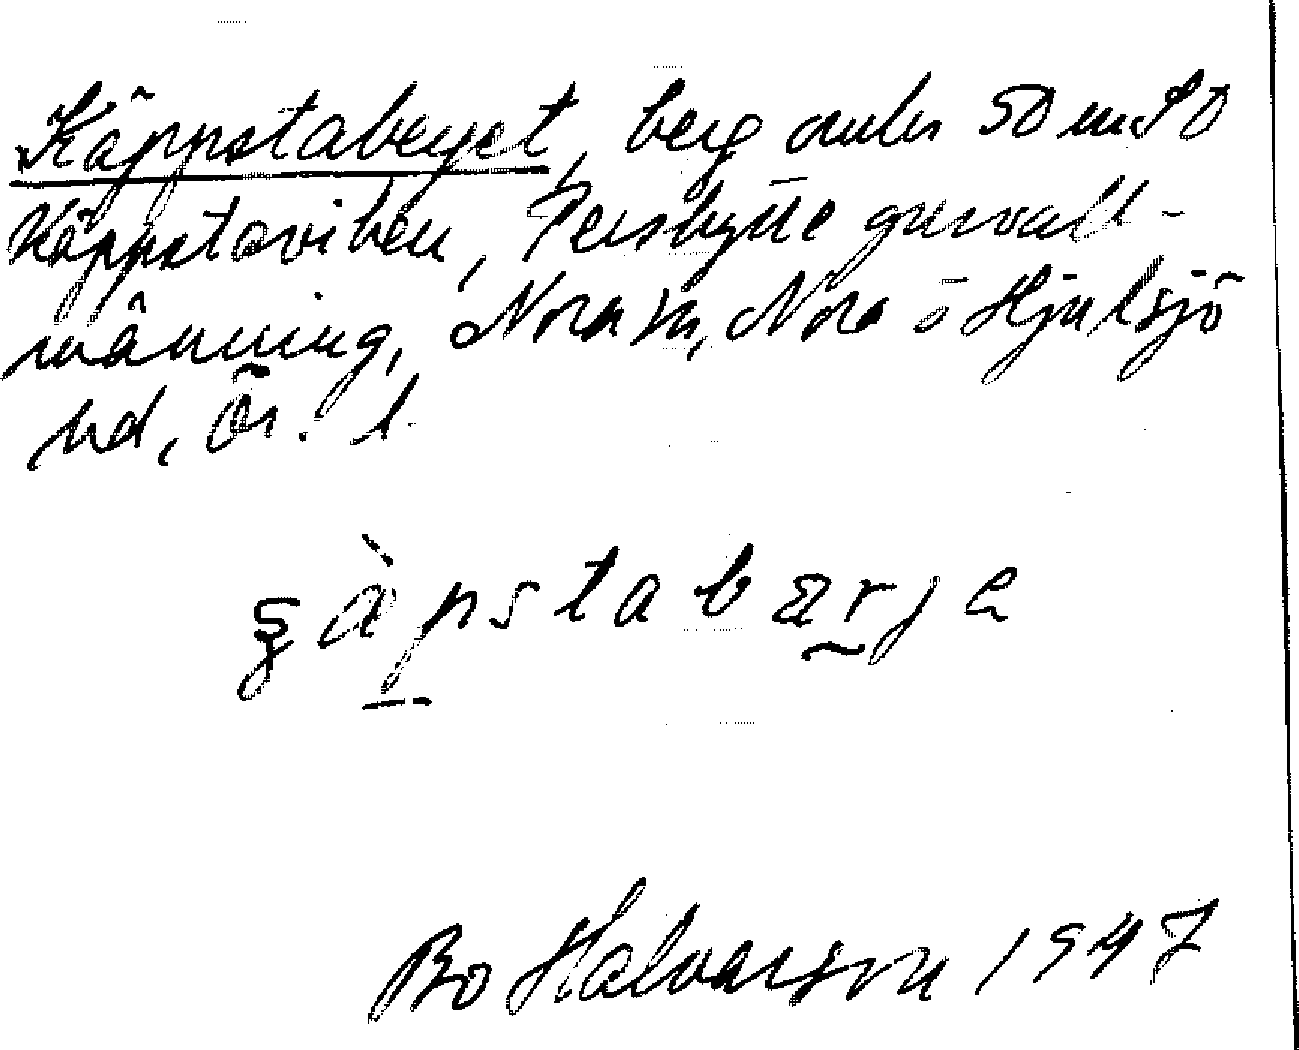 Käppstaberget, berg omkr 50 m SO
Käppstaviken, Pershytte gruvall-
männing, Nora sn, Nora o Hjulsjö
hd, Ör. l.
Bo Halvarson 1947